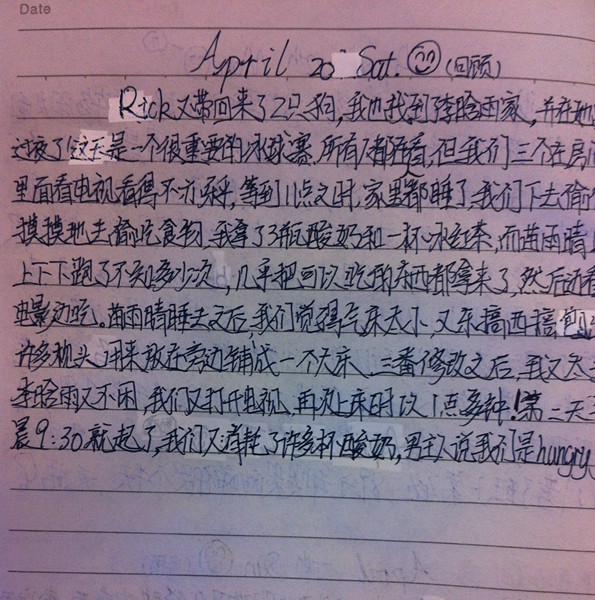 Date
April 20 Sat. (回顾)
Rick又带回来了2只狗,我也找到了李晗雨家,并在她
过夜了这天是一个很重要的冰球赛,所有人都在看,但我们三个在房间
里面看电视看得不亦乐乎,等到11点之时,家里人都睡了,我们下去偷偷
摸摸地去偷吃食物,我拿了3瓶酸奶和一杯冰红茶,而苗雨晴
上下下跑了不知多少次,几乎把可以吃的东西都拿来了,然后边看
电影边吃。苗雨晴睡去之后,我们觉得气床太小,又东搞西搞,
许多枕头用来放在旁边铺成一个大床,三番修改之后,我又太
李晗雨又不困,我们又打开电视,再次上床时以1点多钟!第二天
晨9:30就起了,我们又消耗了许多杯酸奶,男主人说我们是hungry